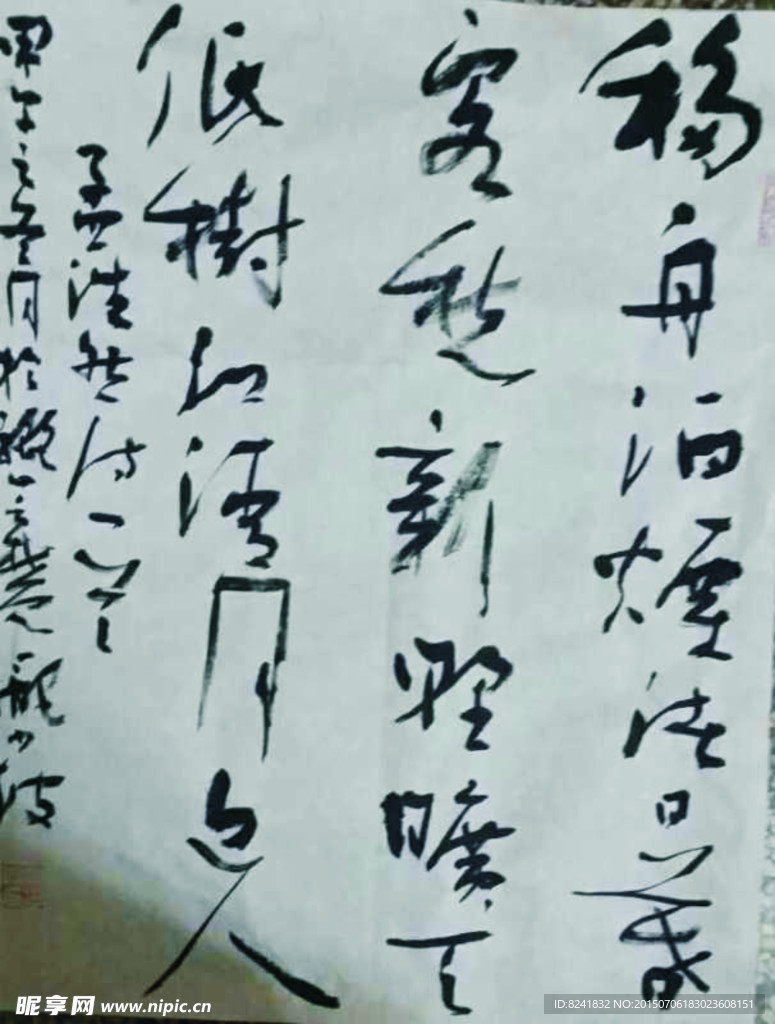 移舟泊煙渚日暮
客愁新野曠天
低樹江清月近人
孟浩然诗一首
甲午之冬月於
昵享网 www.nipic.cn
ID:8241832 NO:20150706183023608151